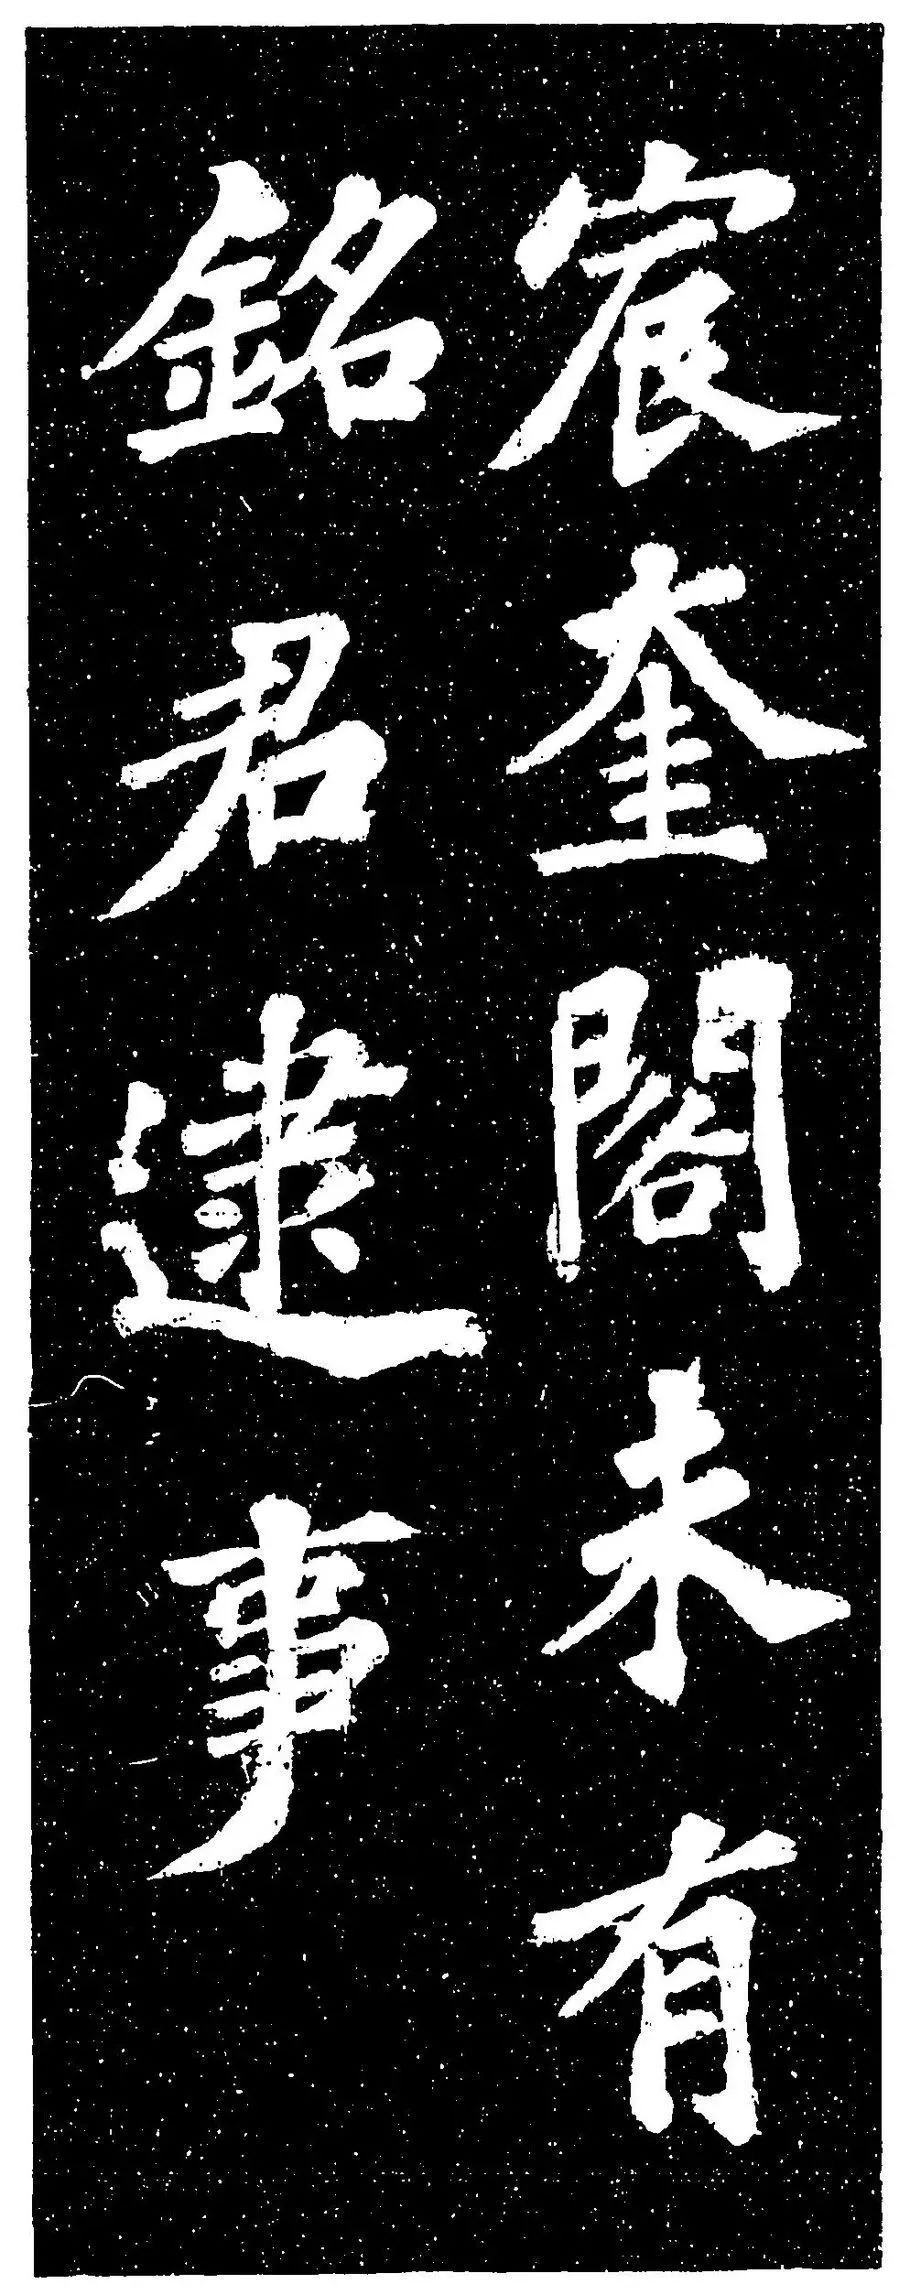 宸奎閣未有
銘君逮事